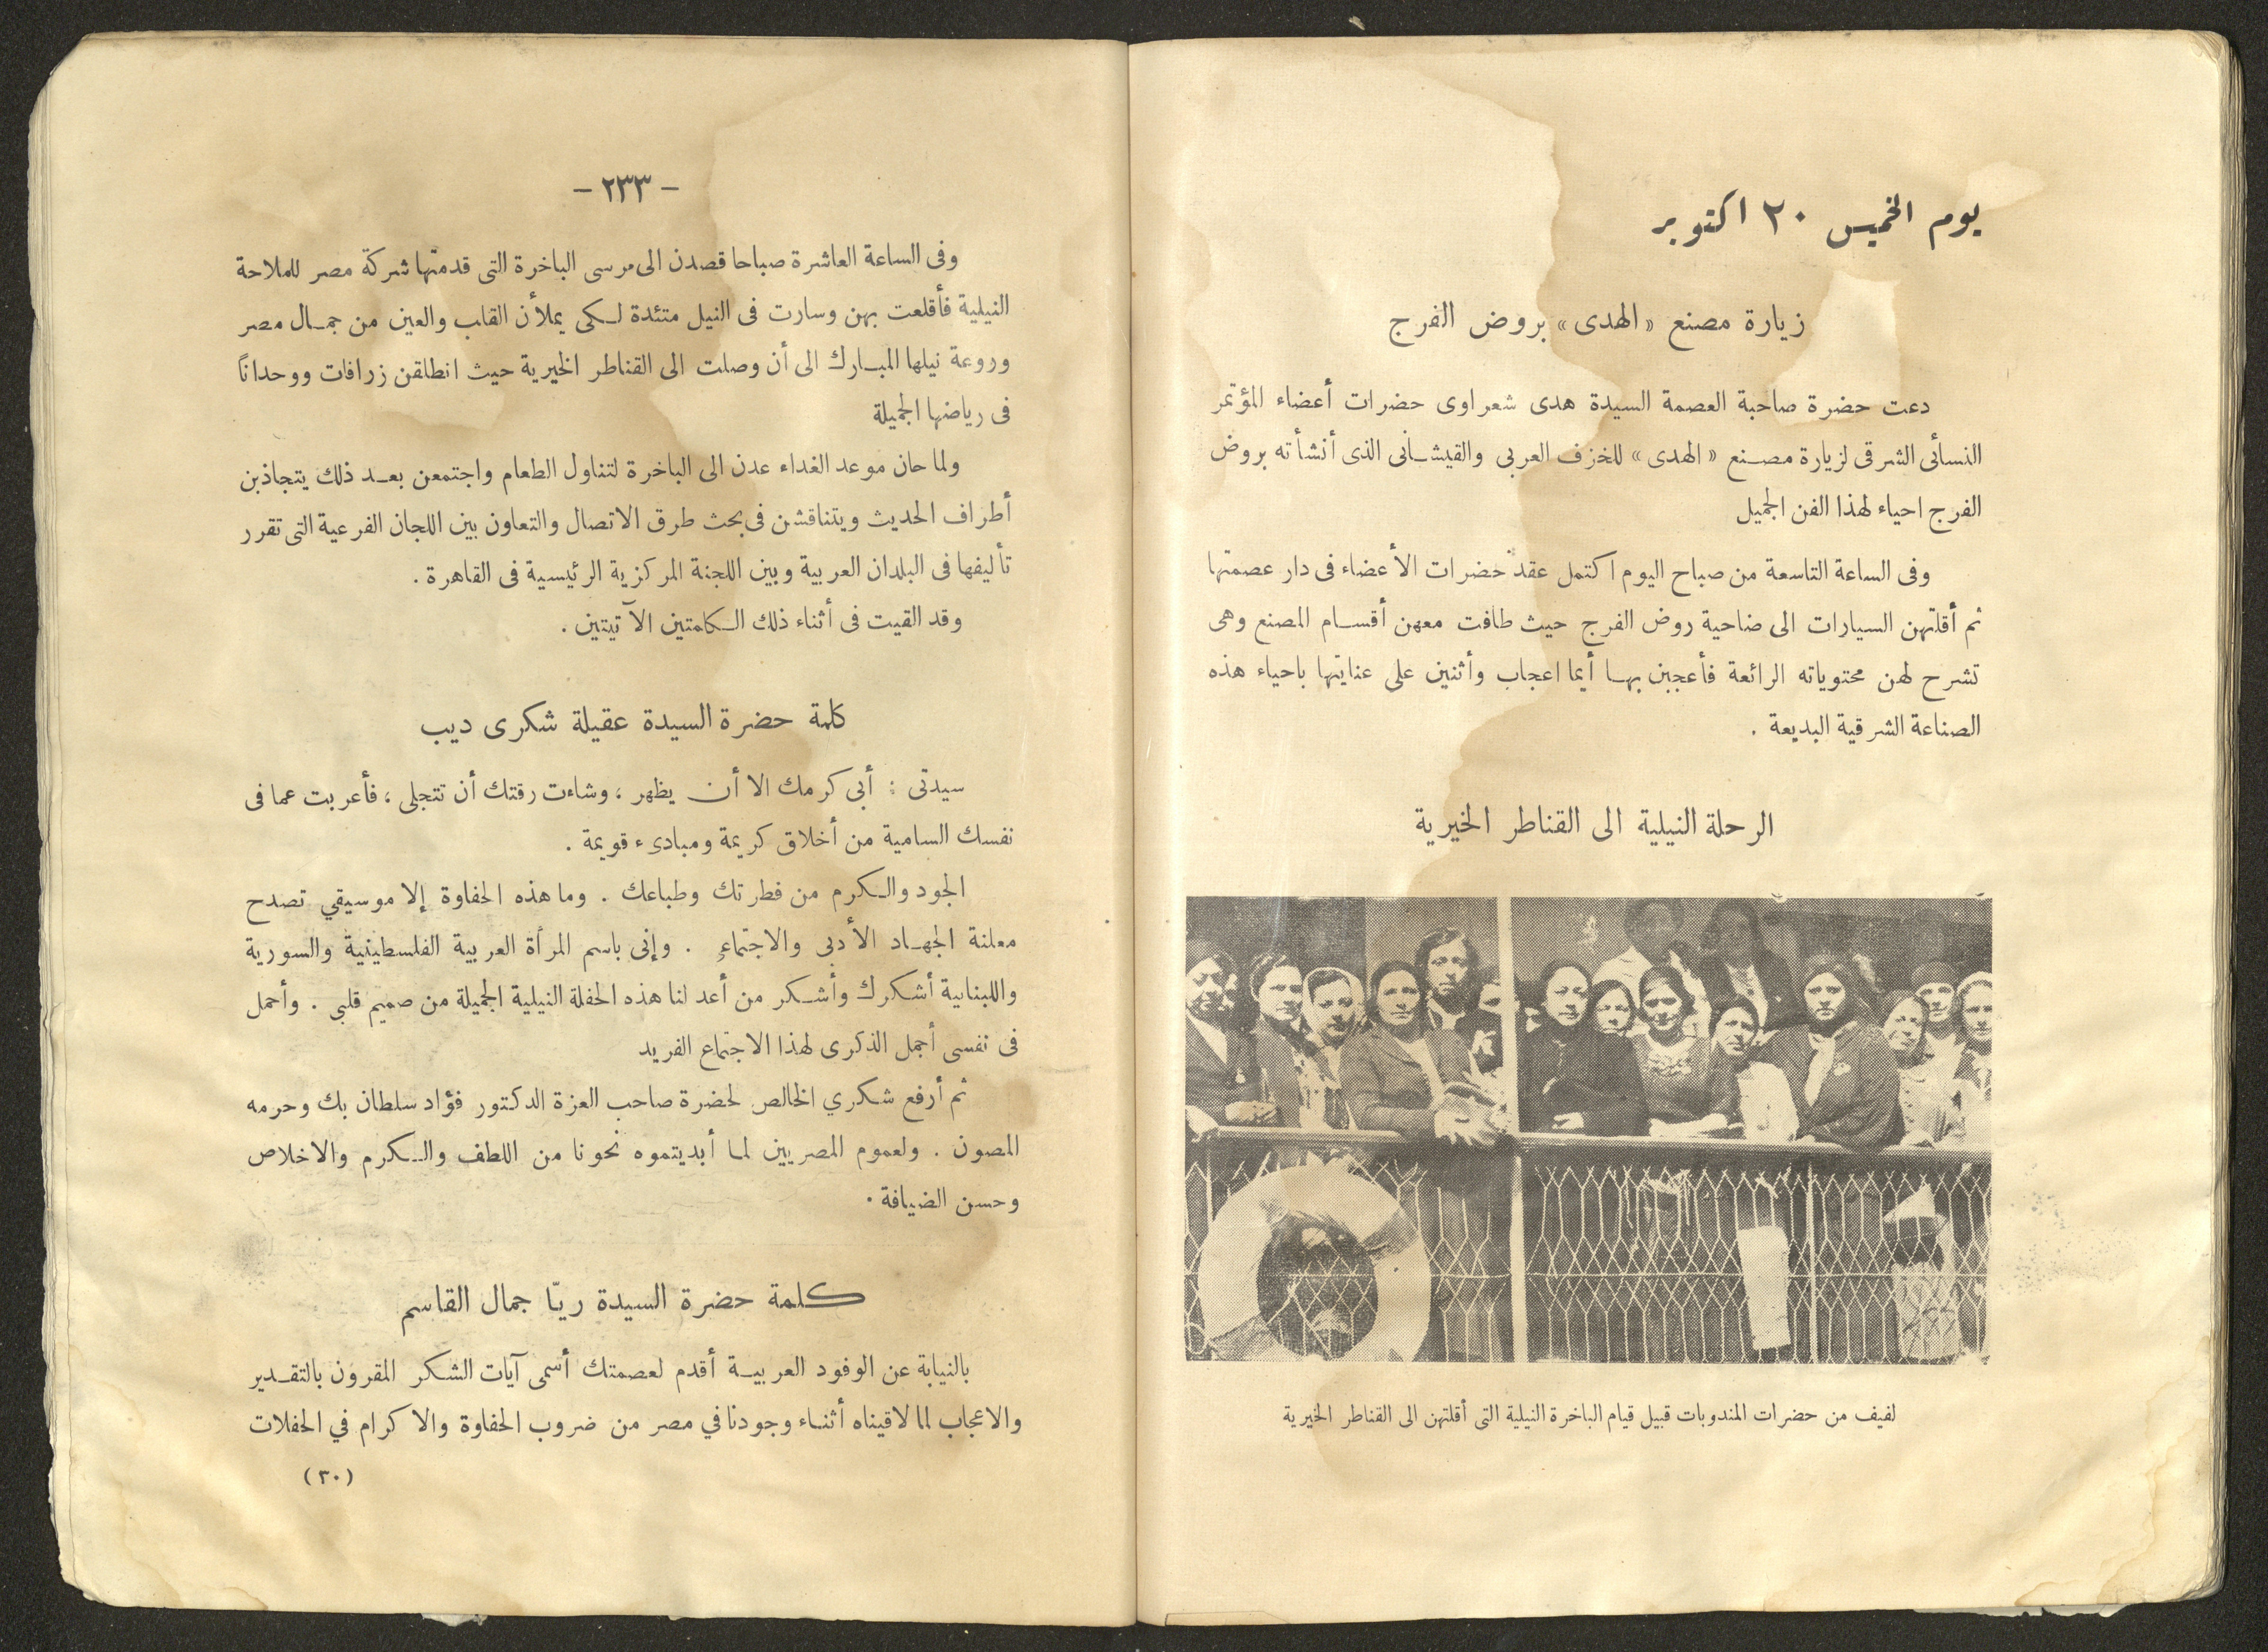 يوم الخميس ٢٠ اكتوبر
زيارة مصنع « الهدى » بروض الفرج
دعت حضرة صاحبة العصمة السيدة هدى شعراوى حضرات أعضاء المؤتمر
النسائى الشرقى لزيارة مصنع « الهدى » للخزف العربى والقيشانى الذى أنشأته بروض
الفرج احياء لهذا الفن الجميل
وفى الساعة التاسعة من صباح اليوم اكتمل عقد حضرات الأعضاء فى دار عصمتها
ثم أقلتهن السيارات الى ضاحية روض الفرج حيث طافت معهن أقسام المصنع وهى
تشرح لهن محتوياته الرائعة فأعجبن بها أيما اعجاب وأثنين على عنايتها باحياء هذه
الصناعة الشرقية البديعة .
الرحلة النيلية الى القناطر الخيرية
لفيف من حضرات المندوبات قبيل قيام الباخرة النيلية التى أقلتهن الى القناطر الخيرية
— ٢٣٣ —
وفى الساعة العاشرة صباحا قصدن الى مرسى الباخرة التى قدمتها شركة مصر للملاحة
النيلية فأقلعت بهن وسارت فى النيل متئدة لكى يملأن القلب والعين من جمال مصر
وروعة نيلها المبارك الى أن وصلت الى القناطر الخيرية حيث انطلقن زرافات ووحداناً
فى رياضها الجميلة
ولما حان موعد الغداء عدن الى الباخرة لتناول الطعام واجتمعن بعد ذلك يتجاذبن
أطراف الحديث ويتناقشن فى بحث طرق الاتصال والتعاون بين اللجان الفرعية التى تقرر
تأليفها فى البلدان العربية وبين اللجنة المركزية الرئيسية فى القاهرة .
وقد القيت فى أثناء ذلك الكلمتين الآتيتين .
كلمة حضرة السيدة عقيلة شكرى ديب
سيدتى : أبى كرمك الا أن يظهر ، وشاءت رقتك أن تتجلى ، فأعربت عما فى
نفسك السامية من أخلاق كريمة ومبادىء قويمة .
الجود والكرم من فطرتك وطباعك . وما هذه الحفاوة إلا موسيقي تصدح
معلنة الجهاد الأدبى والاجتماعي . وإنى باسم المرأة العربية الفلسطينية والسورية
واللبنانية أشكرك وأشكر من أعد لنا هذه الحفلة النيلية الجميلة من صميم قلبى . وأحمل
فى نفسى أجمل الذكرى لهذا الاجتماع الفريد
ثم أرفع شكري الخالص لحضرة صاحب العزة الدكتور فؤاد سلطان بك وحرمه
المصون . ولعموم المصريين لما أبديتموه نحونا من اللطف والكرم والاخلاص
وحسن الضيافة .
كلمة حضرة السيدة ريّا جمال القاسم
بالنيابة عن الوفود العربية أقدم لعصمتك أسمى آيات الشكر المقرون بالتقدير
والاعجاب لما لاقيناه أثناء وجودنا في مصر من ضروب الحفاوة والاكرام في الحفلات
( ٣٠ )